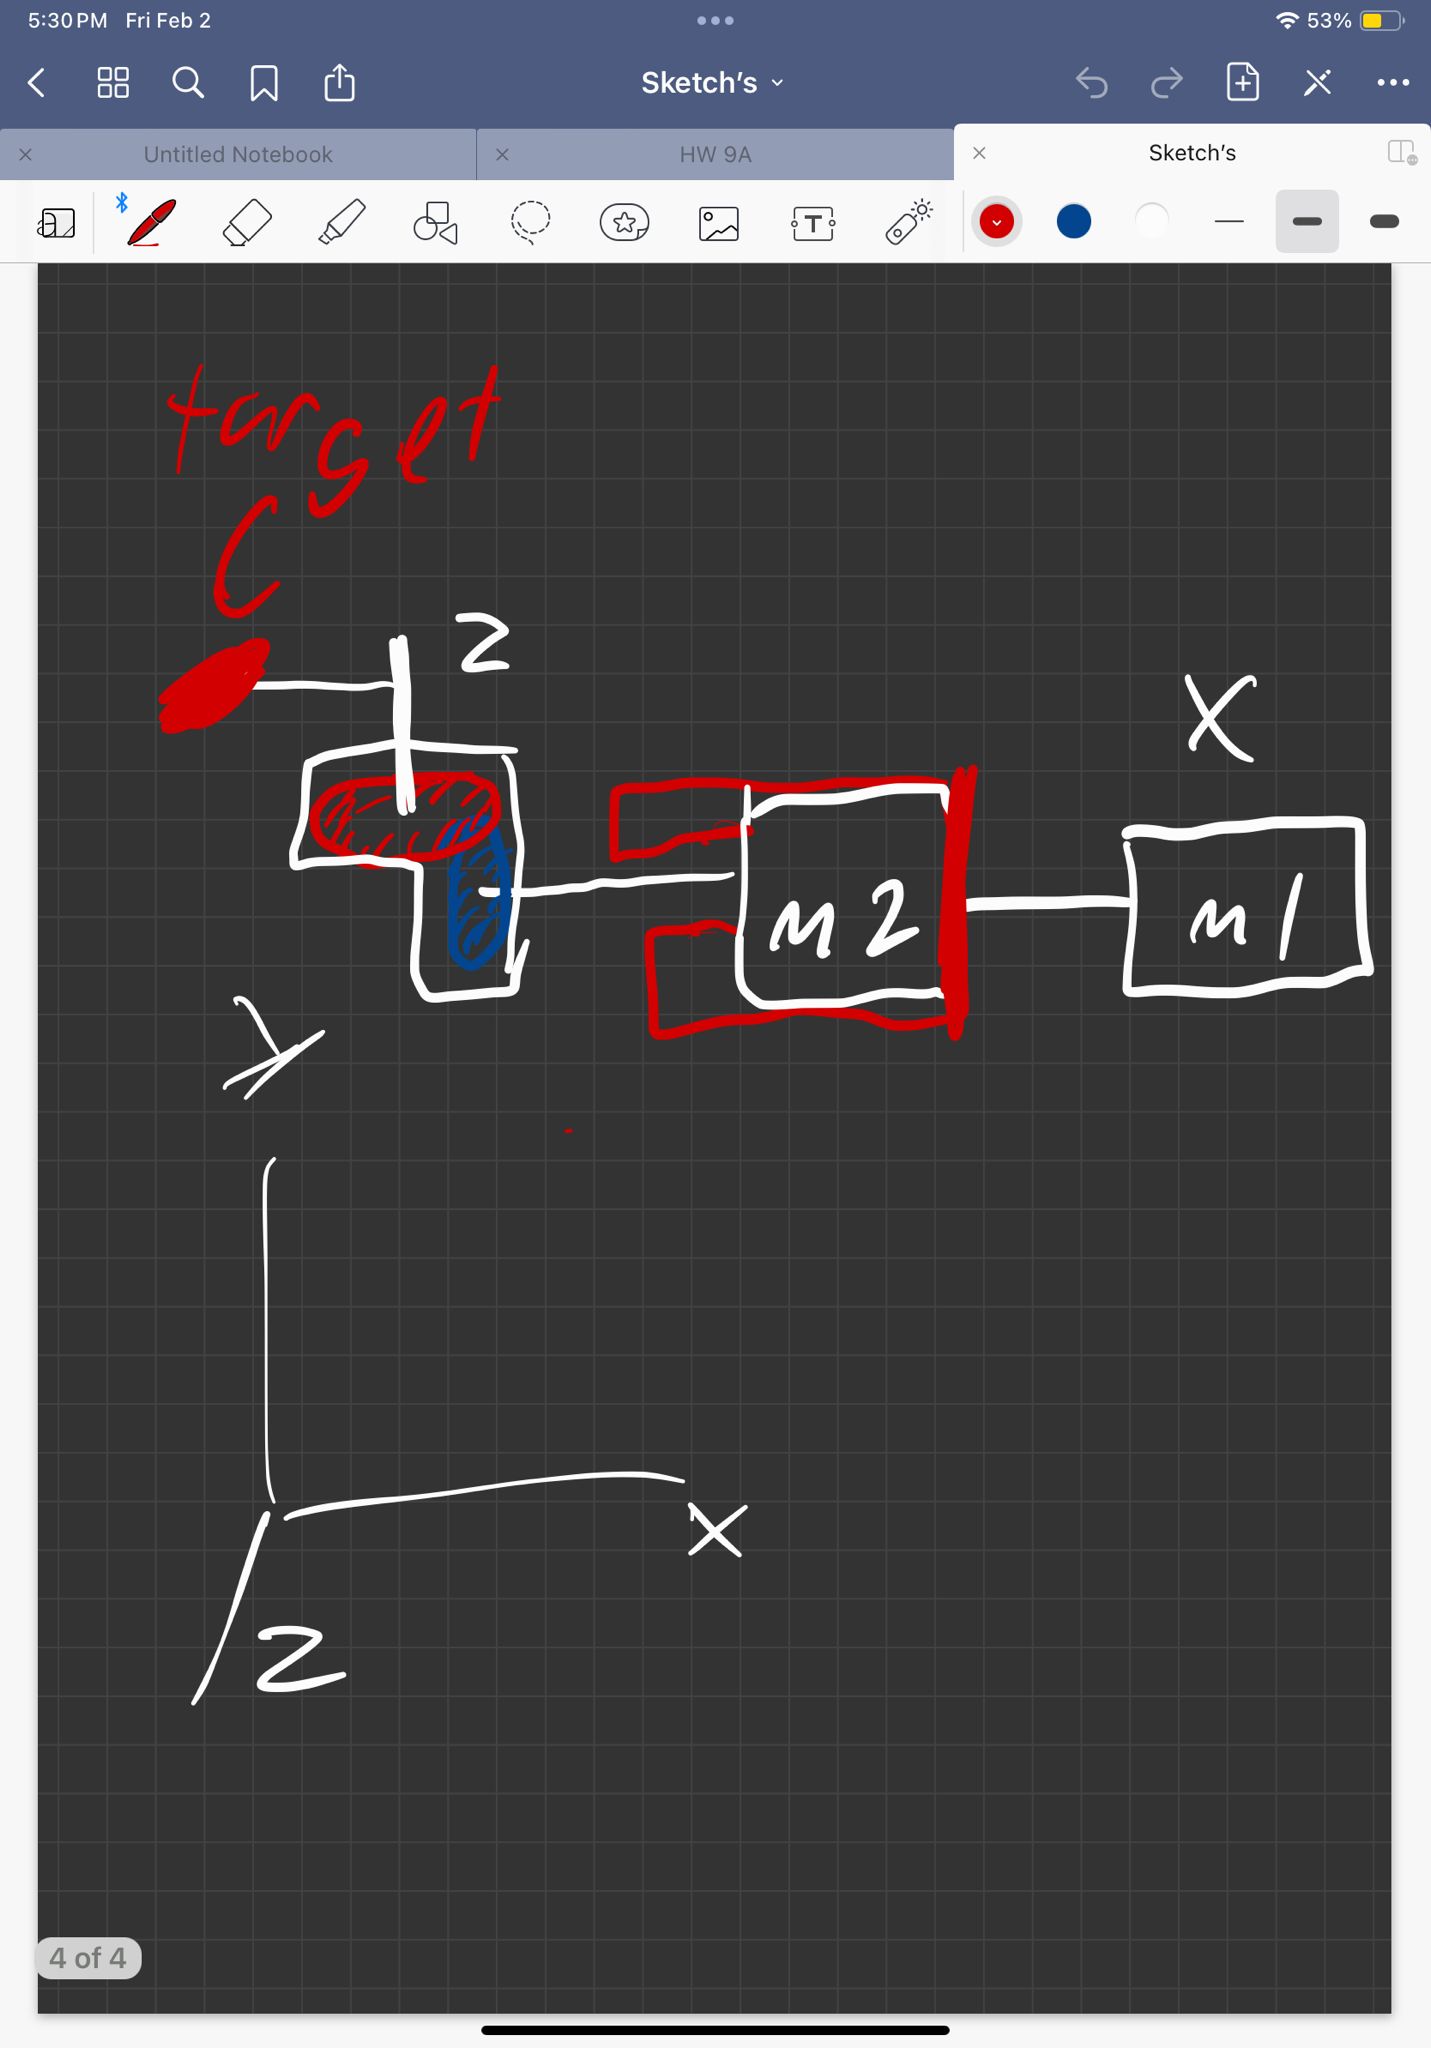 5:30 PM Fri Feb 2
53%
Sketch's
Untitled Notebook
HW 9A
Sketch's
T
target
C
Z
X
M2
M1
Y
X
Z
4 of 4